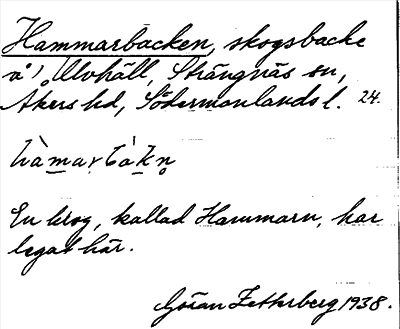 Hammarbacken, skogsbacke
å Ulvhäll, Strängnäs sn,
Åkers hd, Södermanlands l. 24.
En krog, kallad Hammarn, har
legat här.
Göran Zetterberg 1938.